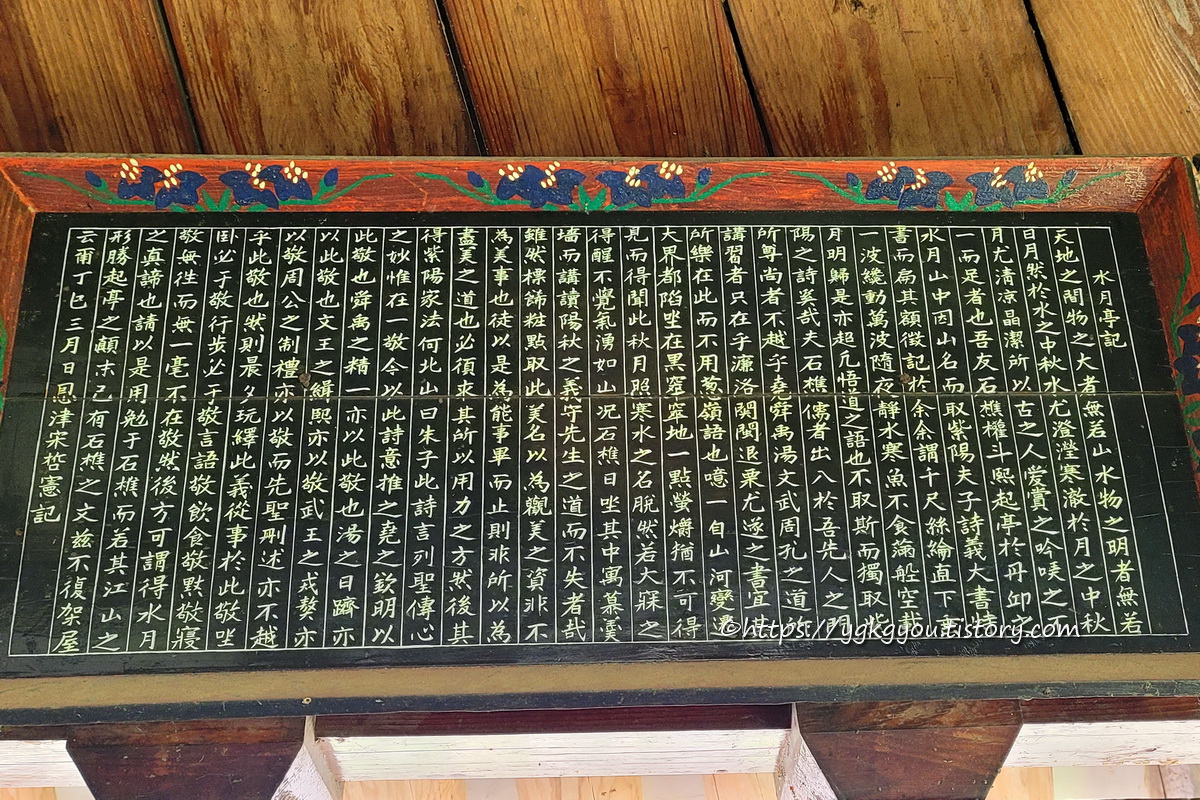 水月亭記
天地之間物之大者無若山水物之明者無若
日月然於水之中秋水尤澄瀅寒澈於月之中秋
月尤清凉晶潔所以古之人爱賞之吟咲之不
一而足者也吾友石樵權斗熙起亭於丹邱之
水月山中因山名而取紫陽夫子詩義大書特
書而扁其額徵記於余余謂千尺絲綸直下垂
一波纔動萬波隨夜靜水寒魚不食滿船空載
月明歸是亦超凡悟道之語也不取斯而獨取紫
陽之詩奚哉夫石樵儒者出入於吾先人之門
所尊尚者不越乎堯舜禹湯文武周孔之道所
講習者只在乎濂洛関閩退栗尤遂之書宜其
所樂在此而不用葱嶺語也噫一自山河變遷
大界都陷坐在黑窣窣地一點螢爝猶不可得
見而得聞此秋月照寒水之名脫然若大寐之
得醒不覺氣湧如山况石樵日坐其中寓慕羹
墻而講讀陽秋之義守先生之道而不失者哉
雖然標飾粧點取此美名以為觀美之資非不
為美事也徒以是為能事畢而止則非所以為
盡美之道也必須求其所以用力之方然後其
得紫陽家法何北山曰朱子此詩言列聖傳心
之妙惟在一敬今以此詩意推之堯之欽明以
此敬也舜禹之精一亦以此敬也湯之日躋亦
以此敬也文王之緝熙亦以敬武王之戎獒亦
以敬周公之制禮亦以敬而先聖刪述亦不越
乎此敬也然則晨夕玩繹此義從事於此敬坐
卧必于敬行步必于敬言語敬飲食敬默敬寢
敬無徃而無一毫不在敬然後方可謂得水月
之真諦也請以是用勉于石樵而若其江山之
形勝起亭之顛末已有石樵之文兹不復架屋
云甫丁巳三月日恩津宋哲憲記